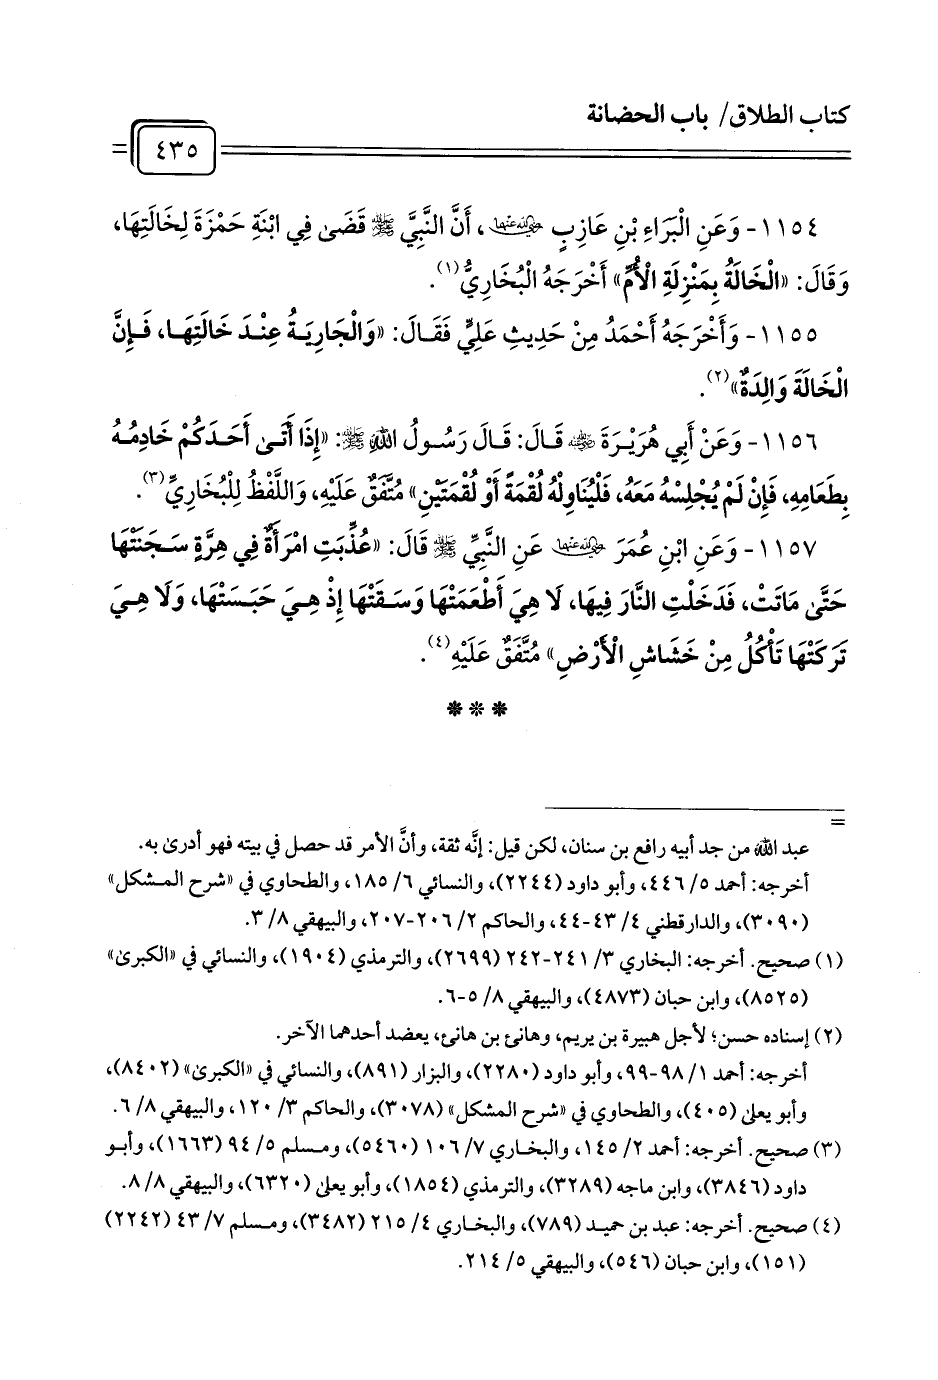 كتاب الطلاق/ باب الحضانة
٤٣٥
١١٥٤- وَعَنِ الْبَرَاءِ بْنِ عَازِبٍ رضي الله عنهما، أَنَّ النَّبِيَّ ﷺ قَضَىٰ فِي ابْنَةِ حَمْزَةَ لِخَالَتِهَا،
وَقَالَ: «الْخَالَةُ بِمَنْزِلَةِ الْأُمِّ» أَخْرَجَهُ الْبُخَارِيُّ(١).
١١٥٥- وَأَخْرَجَهُ أَحْمَدُ مِنْ حَدِيثِ عَلِيٍّ فَقَالَ: «وَالْجَارِيَةُ عِنْدَ خَالَتِهَا، فَإِنَّ
الْخَالَةَ وَالِدَةٌ»(٢).
١١٥٦- وَعَنْ أَبِي هُرَيْرَةَ رضي الله عنه قَالَ: قَالَ رَسُولُ اللهِ ﷺ: «إِذَا أَتَىٰ أَحَدَكُمْ خَادِمُهُ
بِطَعَامِهِ، فَإِنْ لَمْ يُجْلِسْهُ مَعَهُ، فَلْيُنَاوِلْهُ لُقْمَةً أَوْ لُقْمَتَيْنِ» مُتَّفَقٌ عَلَيْهِ، وَاللَّفْظُ لِلْبُخَارِيِّ(٣).
١١٥٧- وَعَنِ ابْنِ عُمَرَ رضي الله عنهما عَنِ النَّبِيِّ ﷺ قَالَ: «عُذِّبَتِ امْرَأَةٌ فِي هِرَّةٍ سَجَنَتْهَا
حَتَّىٰ مَاتَتْ، فَدَخَلَتِ النَّارَ فِيهَا، لَا هِيَ أَطْعَمَتْهَا وَسَقَتْهَا إِذْ هِيَ حَبَسَتْهَا، وَلَا هِيَ
تَرَكَتْهَا تَأْكُلُ مِنْ خَشَاشِ الْأَرْضِ» مُتَّفَقٌ عَلَيْهِ(٤).
* * *
=
عبد الله من جد أبيه رافع بن سنان، لكن قيل: إنَّه ثقة، وأنَّ الأمر قد حصل في بيته فهو أدرىٰ به.
أخرجه: أحمد ٥/ ٤٤٦، وأبو داود (٢٢٤٤)، والنسائي ٦/ ١٨٥، والطحاوي في «شرح المشكل»
(٣٠٩٠)، والدارقطني ٤/ ٤٣-٤٤، والحاكم ٢/ ٢٠٦-٢٠٧، والبيهقي ٨/ ٣.
(١) صحيح. أخرجه: البخاري ٣/ ٢٤١-٢٤٢ (٢٦٩٩)، والترمذي (١٩٠٤)، والنسائي في «الكبرىٰ»
(٨٥٢٥)، وابن حبان (٤٨٧٣)، والبيهقي ٨/ ٥-٦.
(٢) إسناده حسن؛ لأجل هبيرة بن يريم، وهانئ بن هانئ، يعضد أحدهما الآخر.
أخرجه: أحمد ١/ ٩٨-٩٩، وأبو داود (٢٢٨٠)، والبزار (٨٩١)، والنسائي في «الكبرىٰ» (٨٤٠٢)،
وأبو يعلىٰ (٤٠٥)، والطحاوي في «شرح المشكل» (٣٠٧٨)، والحاكم ٣/ ١٢٠، والبيهقي ٨/ ٦.
(٣) صحيح. أخرجه: أحمد ٢/ ١٤٥، والبخاري ٧/ ١٠٦ (٥٤٦٠)، ومسلم ٥/ ٩٤ (١٦٦٣)، وأبو
داود (٣٨٤٦)، وابن ماجه (٣٢٨٩)، والترمذي (١٨٥٤)، وأبو يعلىٰ (٦٣٢٠)، والبيهقي ٨/ ٨.
(٤) صحيح. أخرجه: عبد بن حميد (٧٨٩)، والبخاري ٤/ ٢١٥ (٣٤٨٢)، ومسلم ٧/ ٤٣ (٢٢٤٢)
(١٥١)، وابن حبان (٥٤٦)، والبيهقي ٥/ ٢١٤.